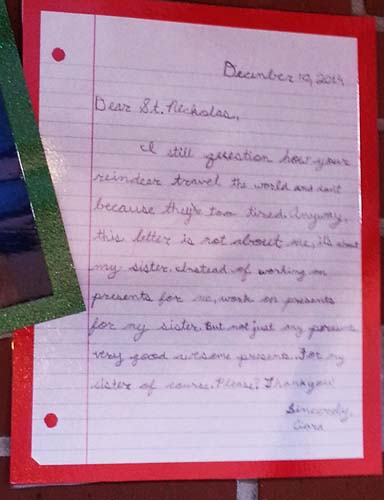 December 19, 2019
Dear St. Nicholas,
I still question how your
reindeer travel the world and don't
because they're too tired. Anyway,
this letter is not about me, it's about
my sister. Instead of working on
presents for me, work on presents
for my sister. But not just any presents
very good awesome presents. For my
sister of course. Please? Thank you!
Sincerely,
Ciara